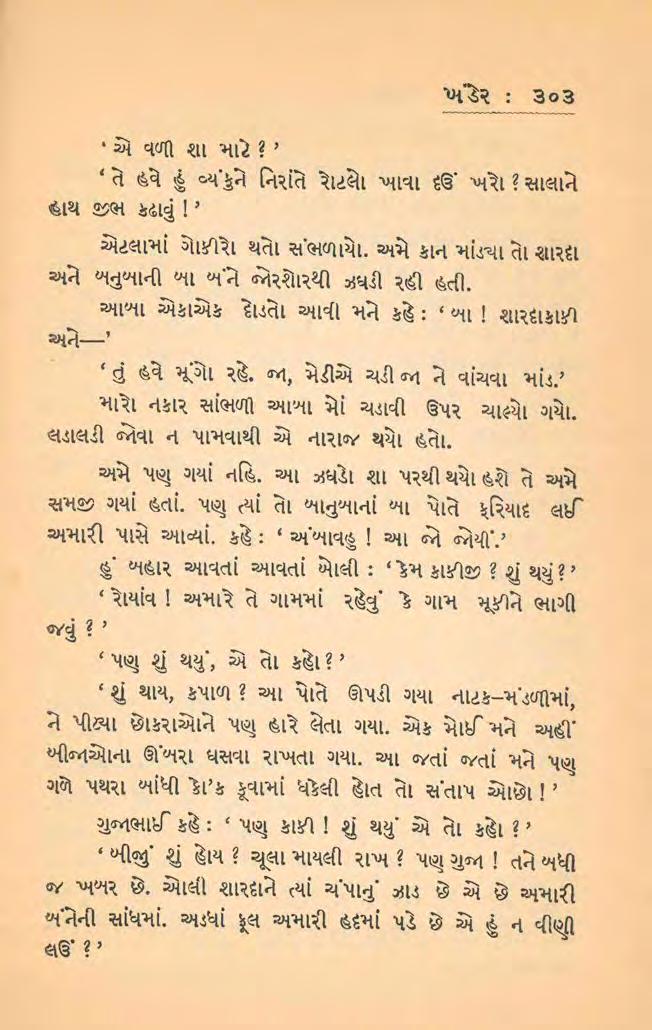 ખંડેર : ૩૦૩
‘ એ વળી શા માટે ? ’
‘ તે હવે હું વ્યંકુને નિરાંતે રોટલો ખાવા દઉં ખરો ? સાલાને
હાથ જીભ કઢાવું ! ’
એટલામાં ગોકીરો થતો સંભળાયો. અમે કાન માંડ્યા તો શારદા
અને બનુબાની બા બંને જોરશોરથી ઝઘડી રહી હતી.
આબા એકાએક દોડતો આવી મને કહે : ‘ બા ! શારદાકાકી
અને—’
‘ તું હવે મૂંગો રહે. જા, મેડીએ ચડી જા ને વાંચવા માંડ.’
મારો નકાર સાંભળી આબા મોં ચડાવી ઉપર ચાલ્યો ગયો.
લડાલડી જોવા ન પામવાથી એ નારાજ થયો હતો.
અમે પણ ગયાં નહિ. આ ઝઘડો શા પરથી થયો હશે તે અમે
સમજી ગયાં હતાં. પણ ત્યાં તો બાનુબાનાં બા પોતે ફરિયાદ લઈ
અમારી પાસે આવ્યાં. કહે : ‘ અંબાવહુ ! આ જો જોયી.’
હું બહાર આવતાં આવતાં બોલી : ‘ કેમ કાકીજી ? શું થયું ? ’
‘ રોયાંવ ! અમારે તે ગામમાં રહેવું કે ગામ મૂકીને ભાગી
જવું ? ’
‘ પણ શું થયું, એ તો કહો ? ’
‘ શું થાય, કપાળ ? આ પોતે ઊપડી ગયા નાટક–મંડળીમાં,
ને પીટ્યા છોકરાઓને પણ હારે લેતા ગયા. એક મોઈ મને અહીં
બીજાઓના ઊંબરા ઘસવા રાખતા ગયા. આ જતાં જતાં મને પણ
ગળે પથરા બાંધી કો’ક કૂવામાં ધકેલી હોત તો સંતાપ ઓછો ! ’
ગુજાભાઈ કહે : ‘ પણ કાકી ! શું થયું એ તો કહો ? ’
‘ બીજું શું હોય ? ચૂલા માયલી રાખ ? પણ ગુજા ! તને બધી
જ ખબર છે. ઓલી શારદાને ત્યાં ચંપાનું ઝાડ છે એ છે અમારી
બંનેની સાંધમાં. અડધાં ફૂલ અમારી હદમાં પડે છે એ હું ન વીણી
લઉં ? ’